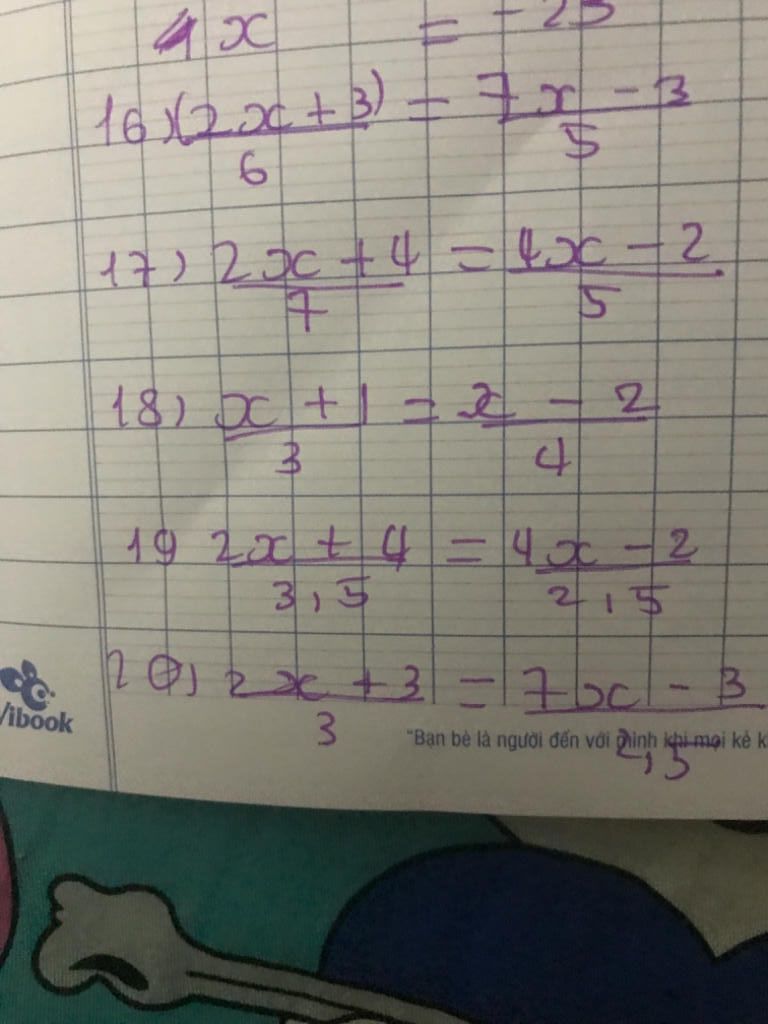 4x = -25
16) (2x + 3) = 7x - 3
6 5
17) 2x + 4 = 4x - 2
7 5
18) x + 1 = x - 2
3 4
19 2x + 4 = 4x - 2
3,5 2,5
20, 2x + 3 = 7x - 3
3 2,5
Vibook
"Bạn bè là người đến với mình khi mọi kẻ k